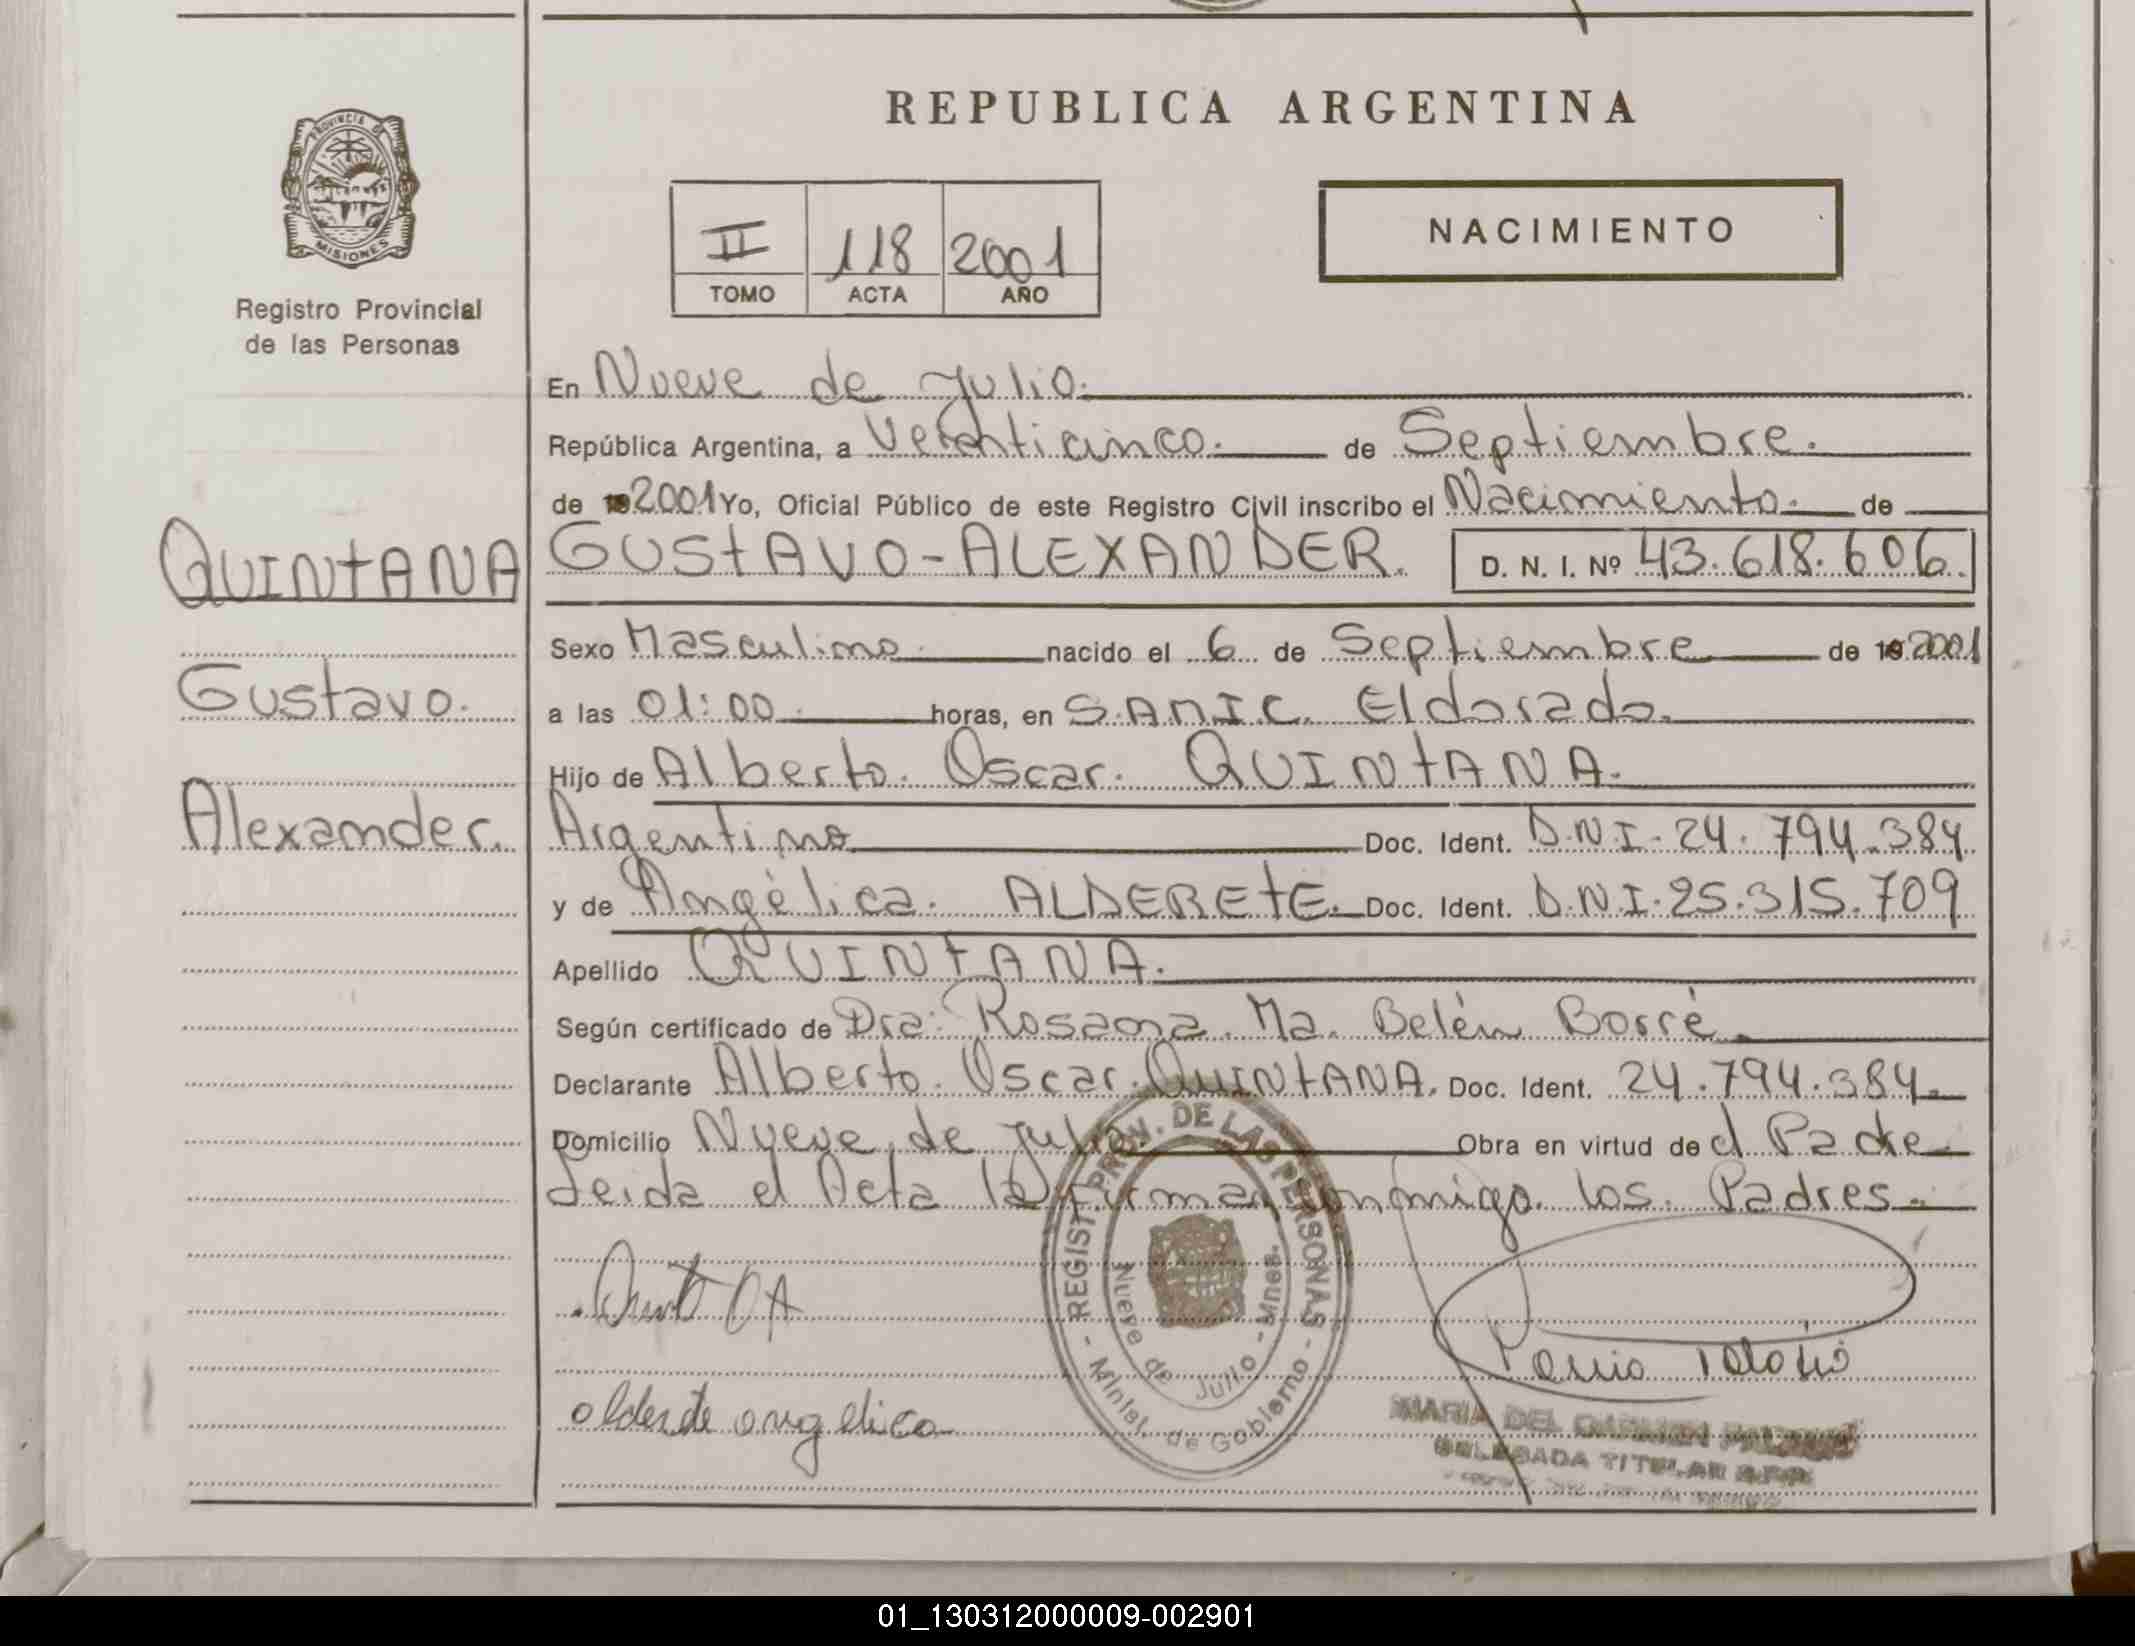 REPUBLICA ARGENTINA
PROVINCIA DE
MISIONES
Registro Provincial
de las Personas
II 118 2001
TOMO ACTA AÑO
NACIMIENTO
En Nueve de Julio.
República Argentina, a Veinticinco. de Septiembre.
de 19 2001 Yo, Oficial Público de este Registro Civil inscribo el Nacimiento. de
QUINTANA
Gustavo.
Alexander.
GUSTAVO-ALEXANDER. D. N. I. Nº 43.618.606.
Sexo Masculino. nacido el 6 de Septiembre de 19 2001
a las 01:00 horas, en S.A.M.I.C. Eldorado.
Hijo de Alberto. Oscar. QUINTANA.
Argentino Doc. Ident. D.N.I. 24.794.384
y de Angélica. ALDERETE. Doc. Ident. D.N.I. 25.315.709
Apellido QUINTANA.
Según certificado de Dra: Rosana. Ma. Belén Borré.
Declarante Alberto. Oscar. QUINTANA. Doc. Ident. 24.794.384.
Domicilio Nueve de Julio. Obra en virtud de el Padre
Leida el Acta la firman conmigo los Padres.
REGIST. PROV. DE LAS PERSONAS
- Minist. de Gobierno -
Nueve de Julio - Mnes.
alderete angelica
MARIA DEL CARMEN
DELEGADA TITULAR R.P.P.
01_130312000009-002901